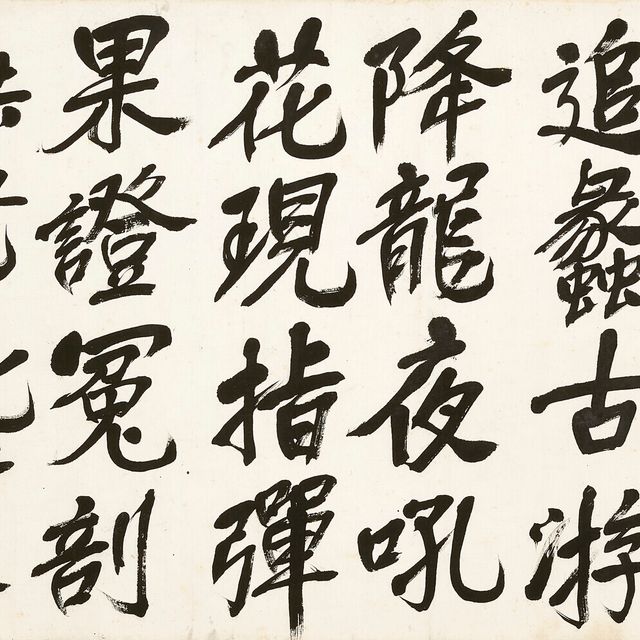 追蠡古游
降龍夜吼
花現指彈
果證冤剖